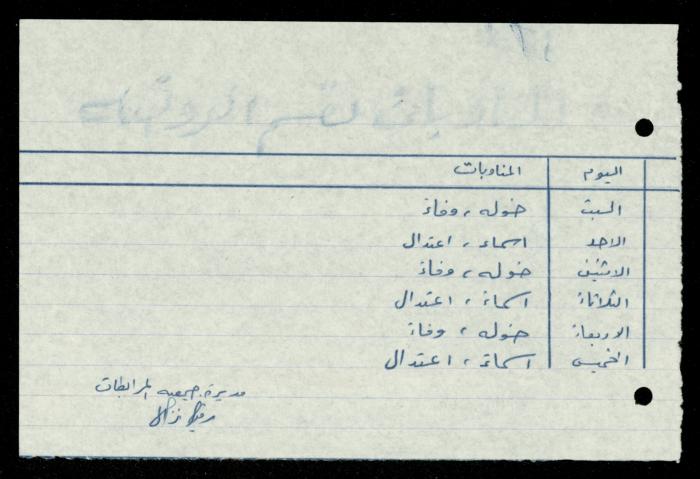 اليوم المناوبات
السبت خوله ، وفاء
الاحد اسماء ، اعتدال
الاثنين خوله ، وفاء
الثلاثاء اسماء ، اعتدال
الاربعاء خوله ، وفاء
الخميس اسماء ، اعتدال
مديرة جمعيه المرابطات